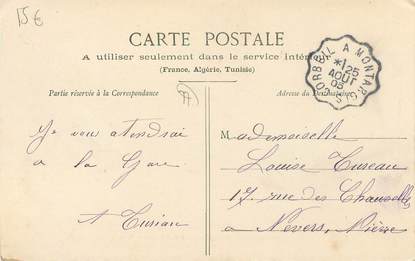 15€
CARTE POSTALE
A utiliser seulement dans le service Intérieur
(France, Algérie, Tunisie)
Partie réservée à la Correspondance
Adresse du Destinataire
CORBEIL A MONTARGIS
*1 25
AOUT
05
Je vous atendrai
a la Gare
A Turian
Mademoiselle
Louise Tureau
17 rue des Chauvelles
a Nevers, Nièvre